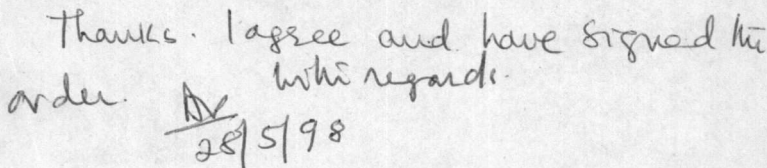 Thanks. I agree and have signed the
order. With regards.
28/5/98